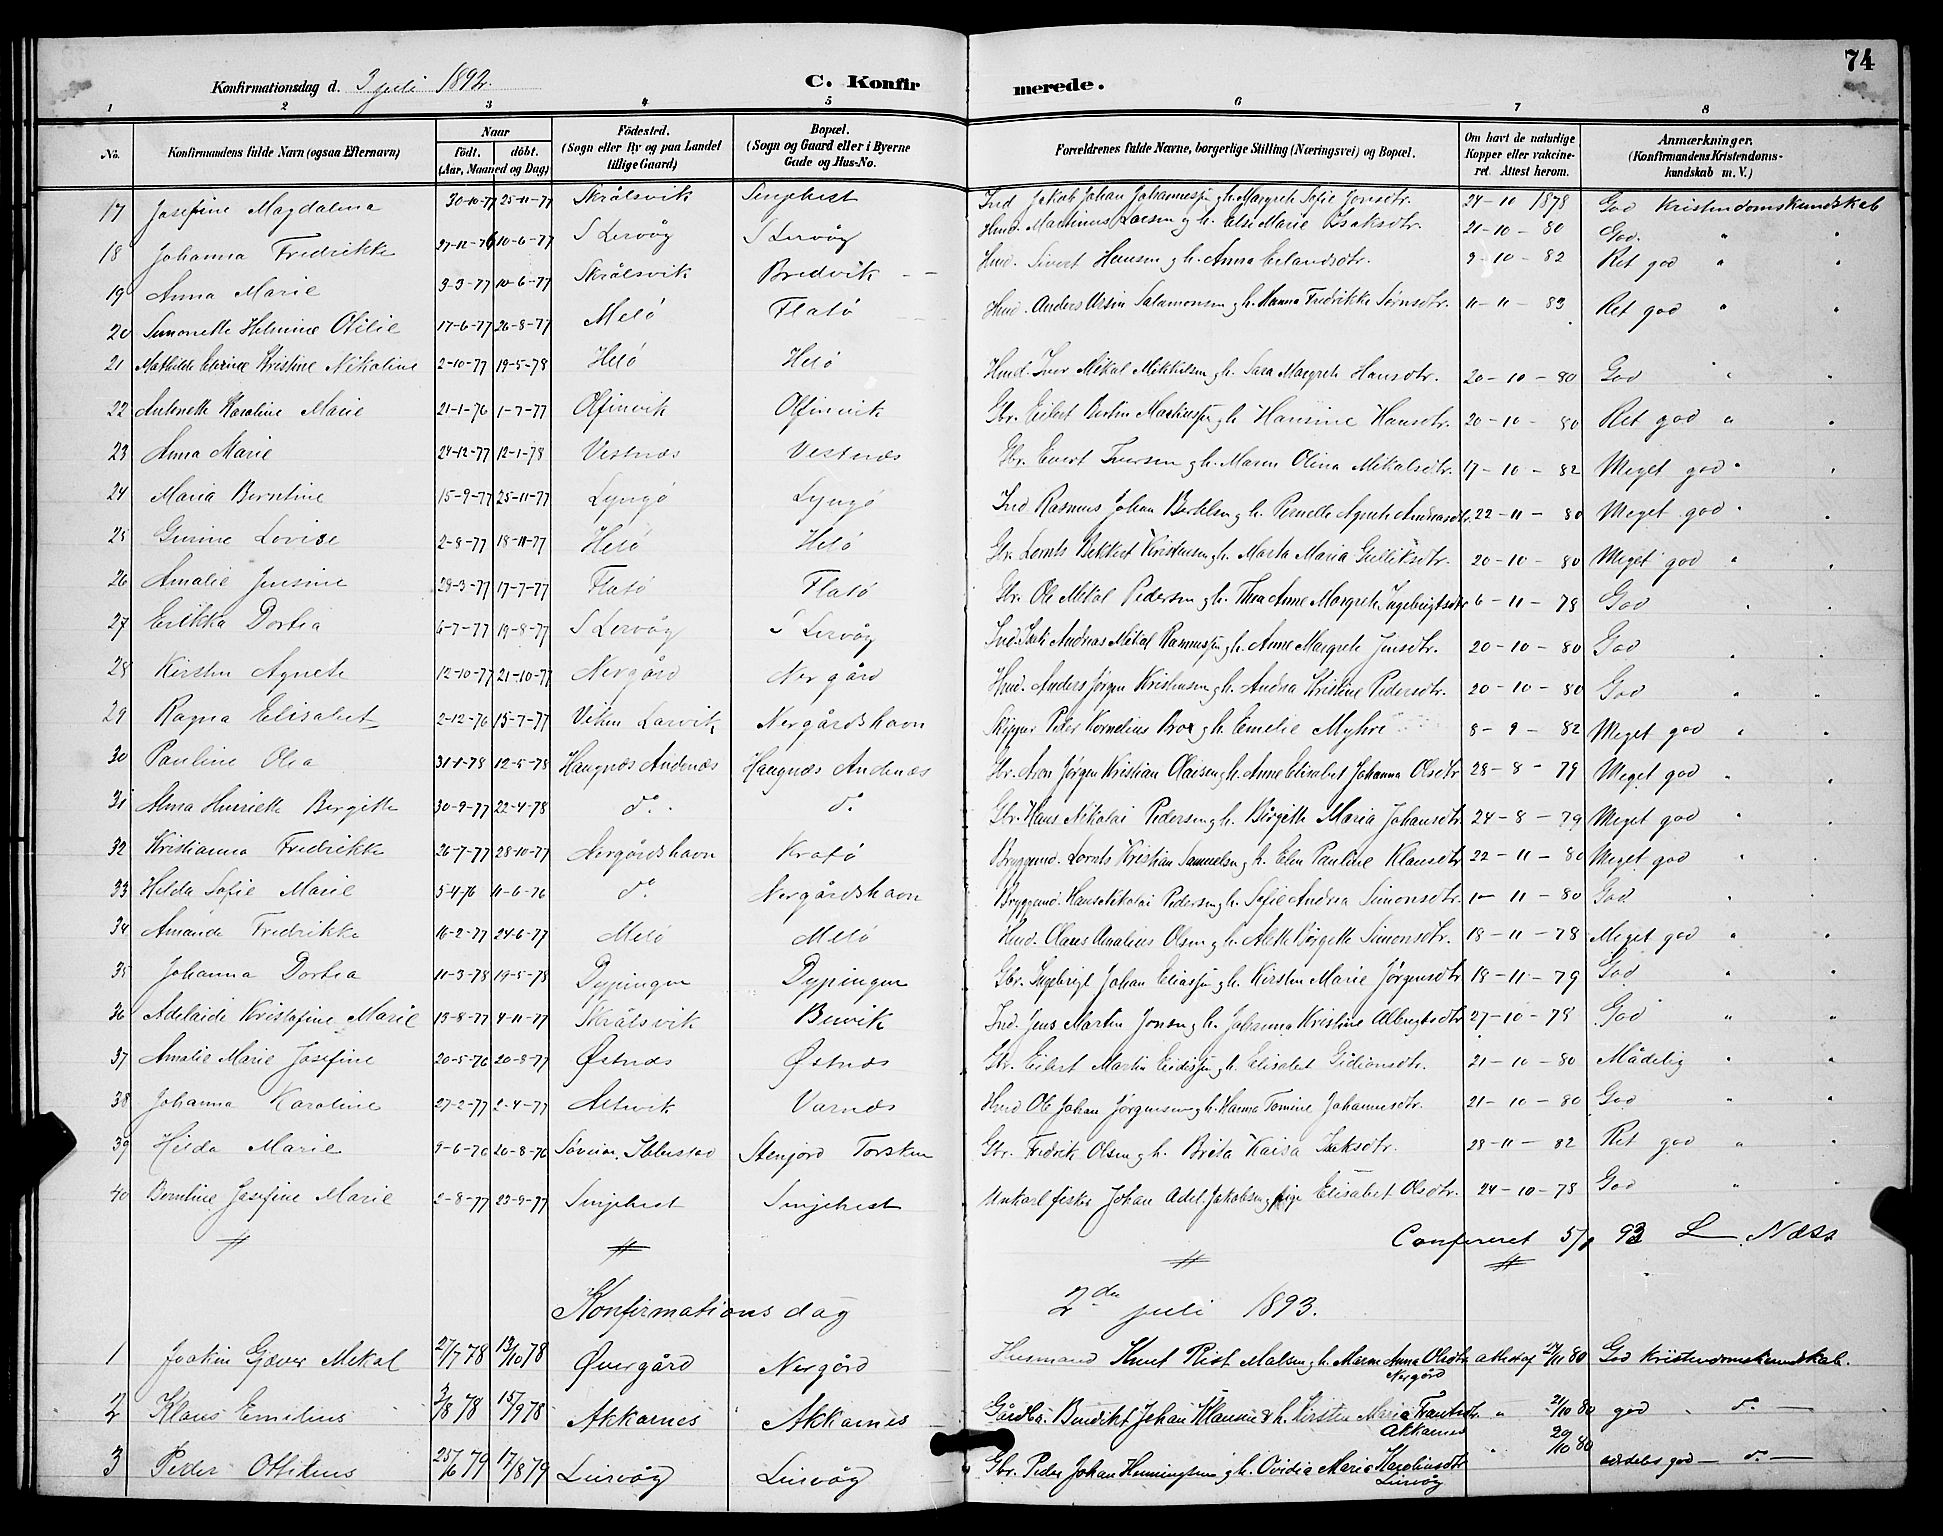 74
Konfirmationsdag d. 3 juli 1892. C. Konfirmerede.
1 2 3 4 5 6 7 8
No. Konfirmandens fulde Navn (ogsaa Efternavn) Naar født. døbt. (Aar, Maaned og Dag) Fødested. (Sogn eller By og paa Landet tillige Gaard) Bopæl. (Sogn og Gaard eller i Byerne Gade og Hus-No. Forældrenes fulde Navne, borgerlige Stilling (Næringsvei) og Bopæl. Om havt de naturlige Kopper eller vakcineret. Attest herom. Anmærkninger. (Konfirmandens Kristendomskundskab m. V.)
17 Josefine Magdalena 30-10-77 25-11-77 Skrålsvik Senjehest Ind Jakob Johan Johannessen g h. Margrete Sofie Jonsdtr. 24-10 1878 God Kristendomskundskab
18 Johanna Fredrikke 27-12-76 10-6-77 S Lervåg S Lervåg Hmd. Martinus Larsen g h. Else Marie Isaksdtr. 21-10-80 God " "
19 Anna Marie 3-3-77 10-6-77 Skrålsvik Bredvik Hmd. Sivert Hansen g h. Anna 9-10-82 Ret god " "
20 Simonette Helmine Otilie 17-6-77 26-8-77 Melö Flatö Hmd. Anders Salamonsen g h. Hanna Fredrikke Sørnsdtr. 11-11-83 Ret god " "
21 Mathilde Kristine Nikoline 2-10-77 19-5-78 Helö Helö Hmd. Iver Mikal Mikkelsen g h. Sara Margrete Hansdtr. 20-10-80 God " "
22 Antonette Karoline Marie 21-1-76 1-7-77 Olfinvik Olfinvik Gbr. Eilert Bertin Martinssen g h Hansine Hansdtr. 20-10-80 Ret god " "
23 Anna Marie 24-12-77 12-1-78 Vestnæs Vestnæs Gbr. Evert Iversen g h. Maren Olina Mikalsdtr. 17-10-82 Meget god " "
24 Maria Berntine 15-9-77 25-11-77 Lyngö Lyngö Ind Rasmus Johan Bertelsen g h. Pernelle Agnete Andreasdtr. 22-11-80 Meget god " "
25 Gurine Lovise 2-8-77 18-11-77 Helö Helö Gbr. Lornts Kristensen g h. Marta Maria Gulliksdtr. 20-10-80 Meget god " "
26 Amalie Jensine 29-3-77 17-7-77 Flatö Flatö Gbr. Ole Mikal Pedersen g h. Thea Anne Margrete Ingebrigtsdtr 6-11-78 God " "
27 Erikka Dortea 6-7-77 19-8-77 S Lervåg S Lervåg Ind. Andreas Mikal Rasmussen g h. Anne Margrete Jensdtr. 20-10-80 God " "
28 Kirsten Agnete 12-10-77 21-10-77 Nergård Nergård Hmd. Anders Jörgen Kristensen g h. Andrea Kristine Pedersdtr. 20-10-80 God " "
29 Ragna Elisabet 2-12-76 15-7-77 Larvik Nergårdshavn Skipper Peder Kornelius g h. Emelie Myhre 8-9-82 Meget god " "
30 Pauline Olea 31-1-78 12-5-78 Haugnæs Andenæs Haugnæs Andenæs Gbr. Aron Jörgen Kristian Olaisen g h. Anne Elisabet Johanna Olsdtr 28-8-79 Meget god " "
31 Anna Henriette Bergitte 30-9-77 22-4-78 do. do. Gbr. Hans Nikolai Pedersen g h. Birgitte Maria Johansdtr 24-8-79 Meget god " "
32 Kristianna Fredrikke 26-7-77 28-10-77 Nergårdshavn Kratö Bryggemd. Lornts Kristian Samuelsen g h. Elen Pauline Klausdtr 22-11-80 Meget god " "
33 Hilda Sofie Marie 5-4-76 11-6-76 do. Nergårdshavn Bryggemd. Hans Nikolai Pedersen g h. Sofie Andrea Simonsdtr. 1-11-80 God " "
34 Amanda Fredrikke 16-2-77 24-6-77 Melö Melö Hmd. Olaus Analius Olsen g h. Alette Birgitte Simonsdtr. 18-11-78 Meget god " "
35 Johanna Dortea 11-3-78 19-5-78 Dypingen Dypingen Gbr. Ingebrigt Johan Eliassen g h. Kirsten Marie Jörgensdtr 18-11-79 God " "
36 Adelaide Kristofine Marie 13-8-77 4-11-77 Skrålsvik Beivik Ind. Jens Martin Jonsen g h. Johanna Kristine Albrigtsdtr 27-10-78 God " "
37 Amalie Marie Josefine 20-5-76 20-8-77 Østnæs Østnæs Gbr. Eilert Martin g h. Elisabet Gidionsdtr. 21-10-80 Mådelig " "
38 Johanna Karoline 27-2-77 2-4-77 Altevik Varnæs Hmd Ole Johan Jörgensen g h. Hanna Tomine Johannesdtr. 21-10-80 God " "
39 Hilda Marie 9-6-76 20-8-76 Ibbestad Stenjord Torsken Gbr. Fredrik Olsen g h. Brita Kaisa Isaksdtr. 28-11-82 Ret god " "
40 Berntine Josefine Marie 2-8-77 23-9-77 Senjehest Senjehest Unkarl fisker Johan Adel. Jakobsen g pige Elisabet Olsdtr. 24-10-78 God " "
Confereret 5/1 93 L. Næss
Konfirmationsdag 2den juli 1893.
1 Joakim Gjæver Mikal 27/7 78 13/10 78 Øvergård Nergård Husmand Knut Rist Matsen g h. Maren Anna Olsdtr Nergård attest af 21/11 80 God Kristendomskundskab.
2 Klaus Emelius 3/8 78 15/9 78 Akkarnes Akkarnes Gårdbr. Benedikt Johan Klausen & h. Kirsten Maria Frantsdtr. Akkarnes " 21/10 80 god do.
3 Peder Ottelius 25/6 79 17/8 79 Leirvåg Leirvåg Gbr. Peder Johan Henningsen g h. Ovidia Marie Karolinsdtr Leirvåg " 20/10 80 særdeles god do.